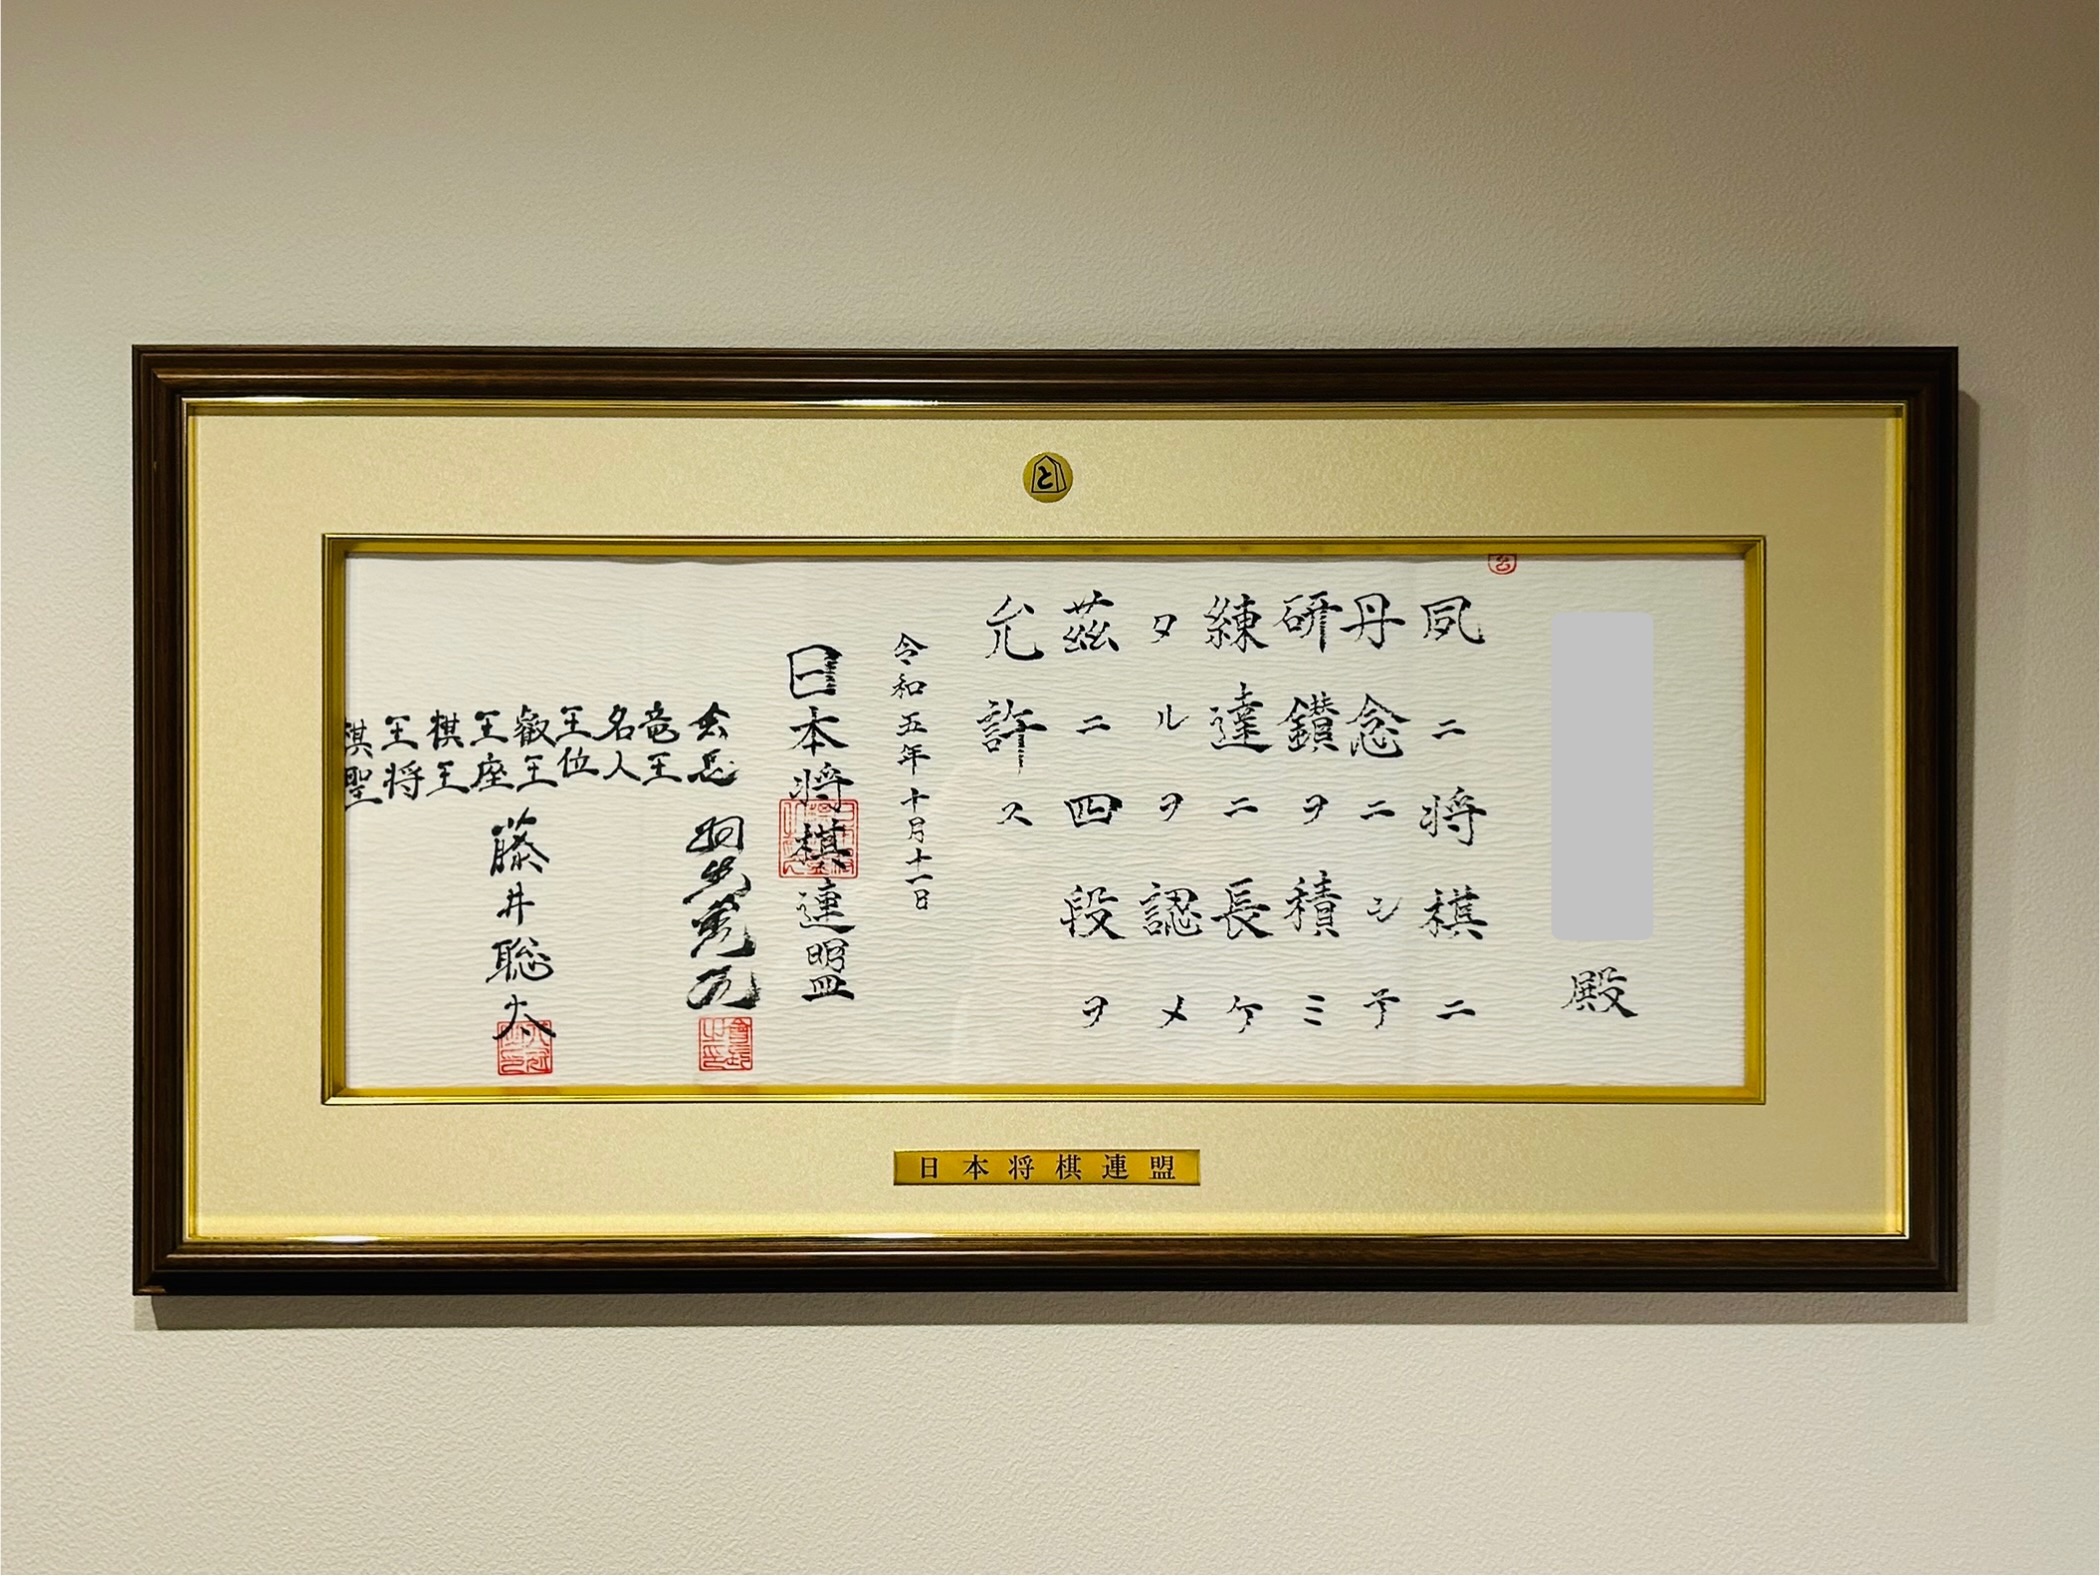 と
殿
夙ニ将棋ニ
丹念ニシテ
研鑚ヲ積ミ
練達ニ長ケ
タルヲ認メ
茲ニ四段ヲ
允許ス
令和五年十月十一日
日本将棋連盟
会長 羽生善治
竜王
名人
王位
叡王
王座
棋王
王将
棋聖
藤井聡太
日本将棋連盟